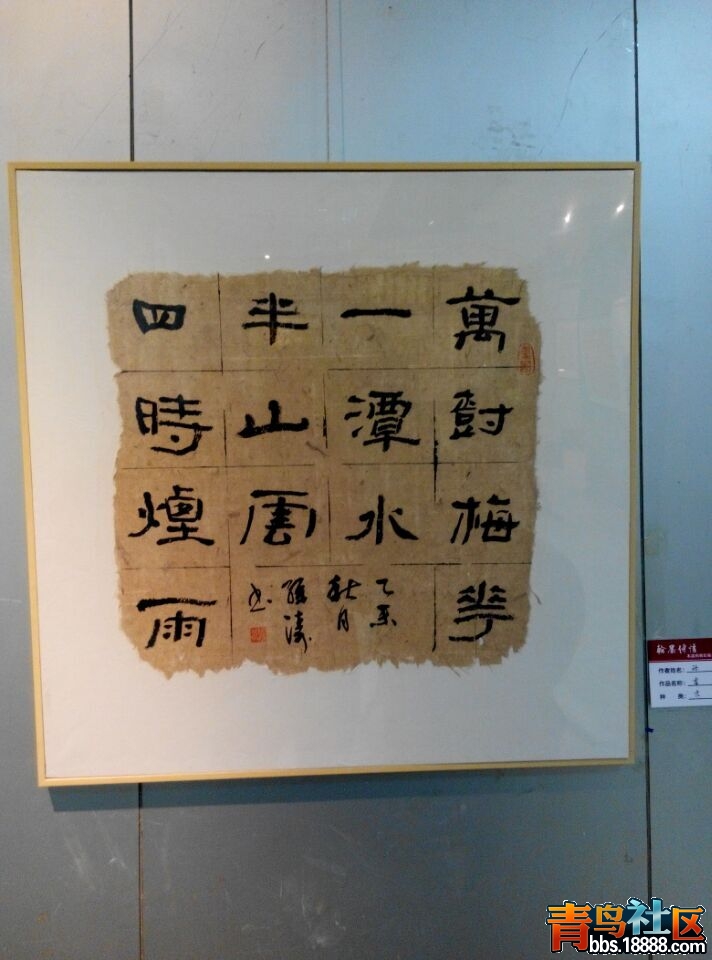 萬尌梅花
一潭水
半山雲
四時煙雨
乙未
秋月
孫濤
书
翰墨传情
作者姓名：
作品名称：
种 类：
青鸟社区
bbs.18888.com